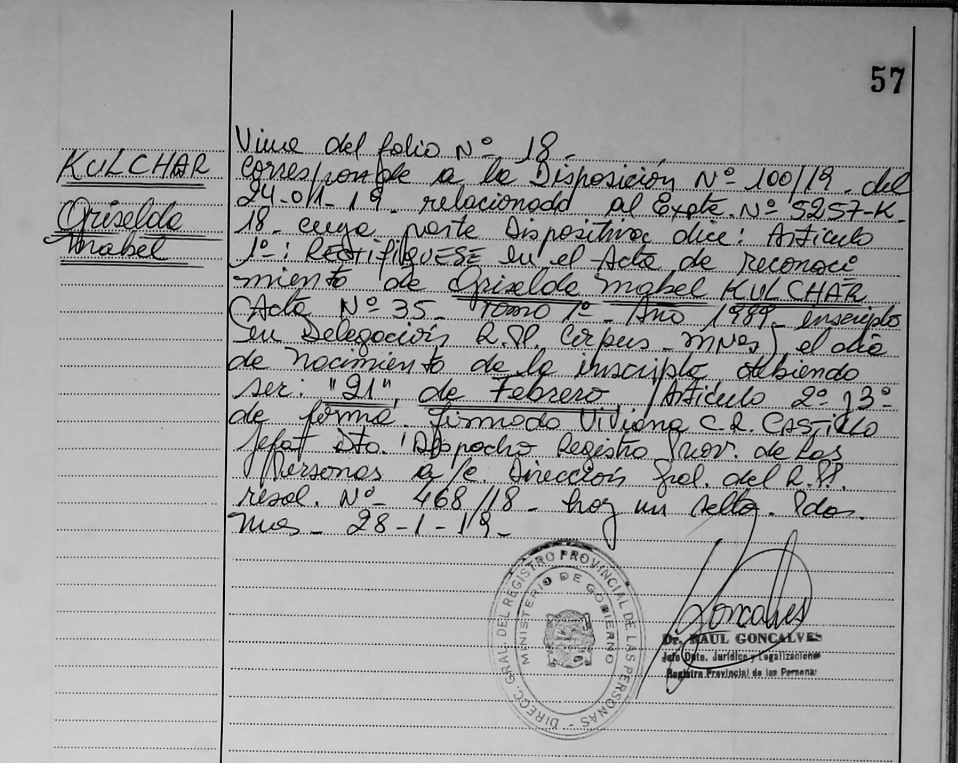 57
KULCHAR
Griselda
Mabel
Viene del folio Nº 18.
Corresponde a la Disposición Nº 100/19. del
24-01-19. relacionado al Expte. Nº 5257-K-
18. cuya parte Dispositiva dice: Artículo
1º: RECTIFIQUESE en el Acta de reconoci
miento de Griselda Mabel KULCHAR
(Acta Nº 35 - Tomo 1º - Año 1989 - inscripto
en Delegación R.P. Corpus - Mnes) el día
de nacimiento de la inscripta debiendo
ser: "21" de Febrero. Artículo 2º y 3º
de forma. firmado Viviana C.R. CASTILLO
Jefa Dto. Despacho Registro Prov. de las
Personas a/c. Dirección Gral. del R.P.
resol. Nº 468/18 - hay un sello. Pdas.
Mnes - 28-1-19-
DIRECC. GRAL. DEL REGISTRO PROVINCIAL DE LAS PERSONAS -
MINISTERIO DE GOBIERNO
Goncalves
Dr. RAUL GONCALVES
Jefe Dpto. Jurídico y Legalizaciones
Registro Provincial de las Personas